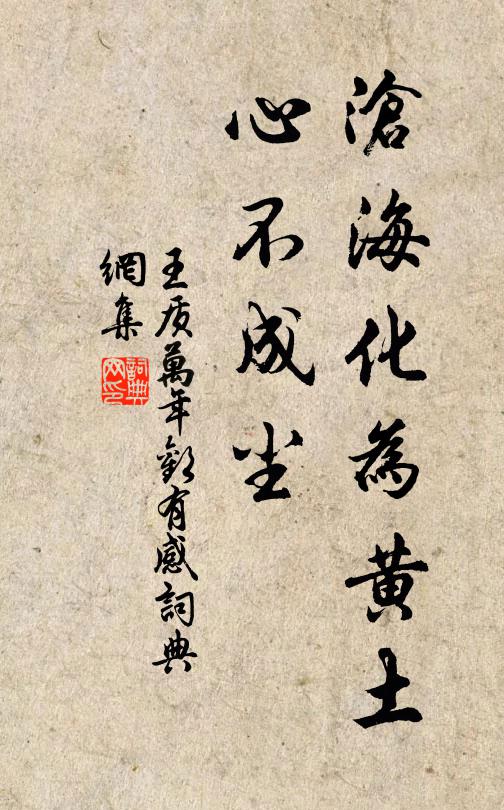 滄海化為黃土
心不成尘
王质萬年觀有感詞典
網集
詞典網印